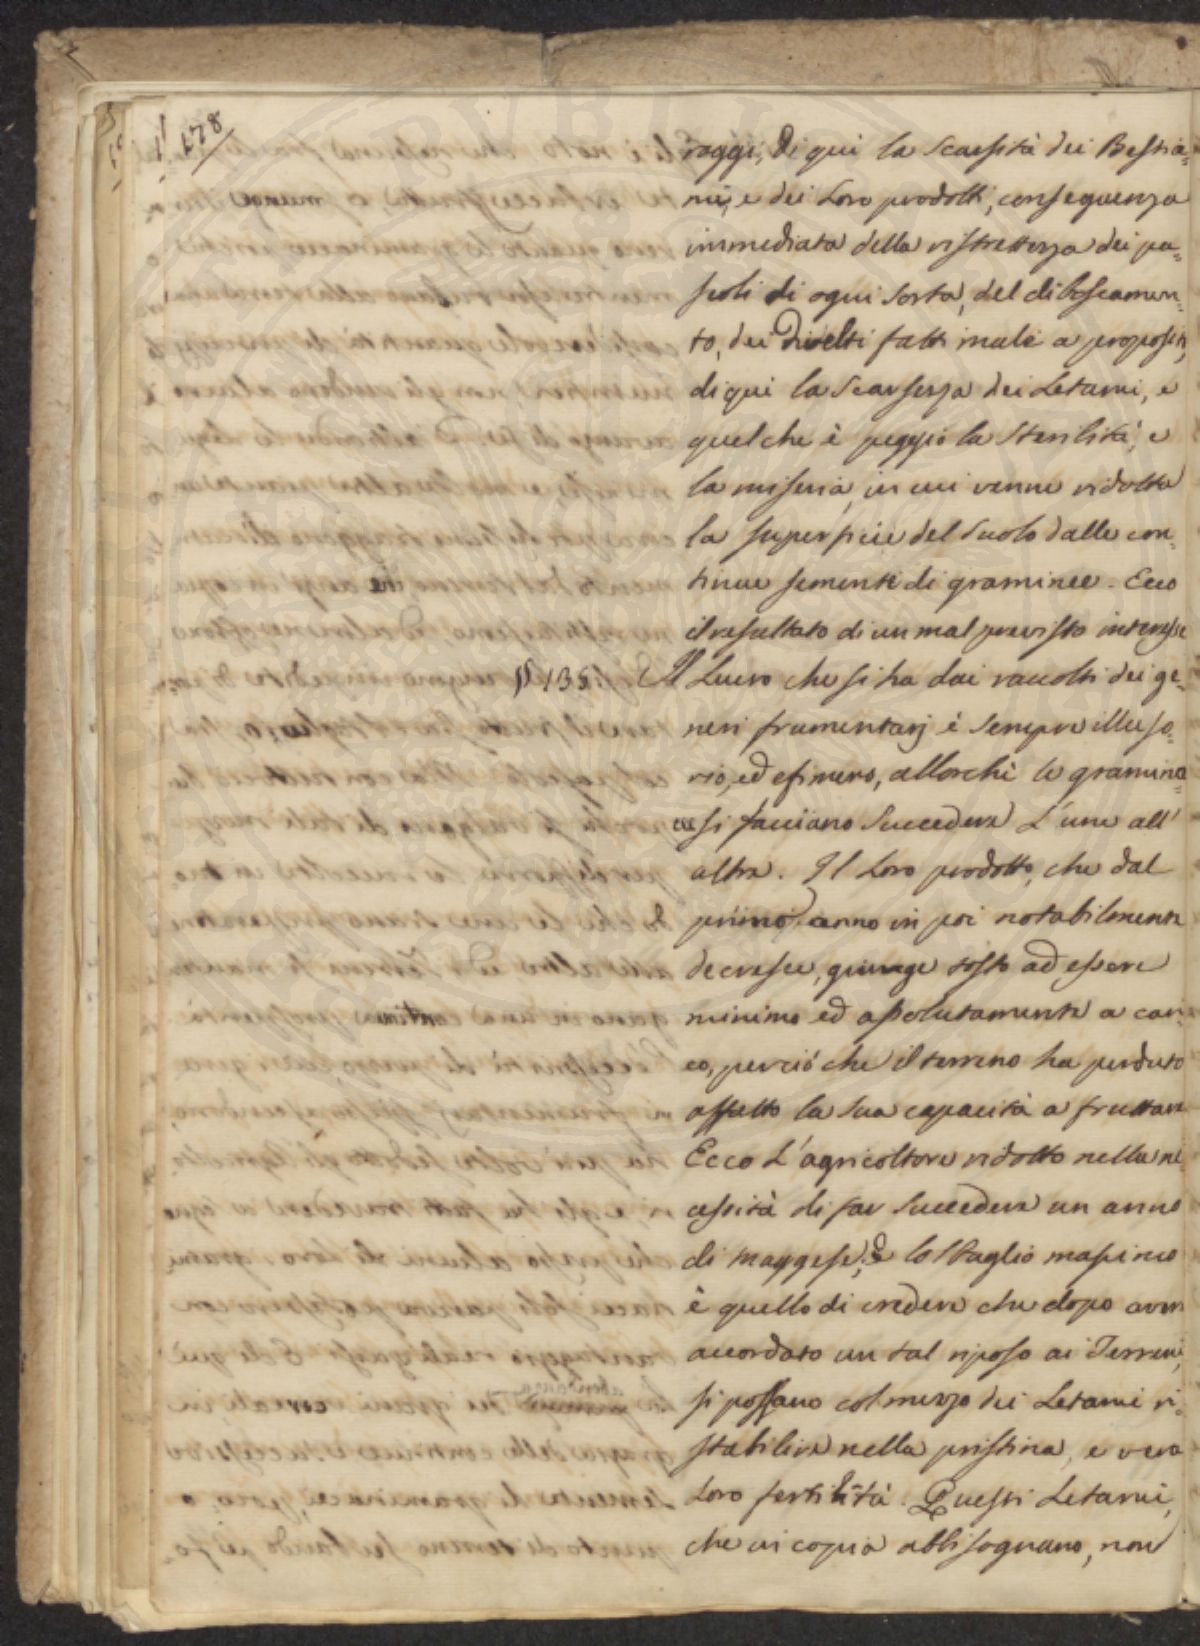 178
raggi, di qui la scarsità dei Bestia=
mi, e dei Loro prodotti, conseguenza
immediata della ristrettezza dei pa=
scoli di ogni sorta, del diboscamen=
to, dei Divelti fatti male a proposito,
di qui la Scarsezza dei Letami, e
quel che è peggio la Sterilità, e
la miseria, in cui venne ridotta
la superficie del Suolo dalle con=
tinue sementi di graminee. Ecco
il resultato di un mal previsto interesse
§ 135 Il Lucro che si ha dai raccolti dei ge=
neri frumentarj è sempre illuso=
rio, ed efimero, allorchè le gramina=
cee si facciano Succedere L'une all'
altra. Il Loro prodotto, che dal
primo anno in poi notabilmente
decresce, giunge tosto ad essere
minimo ed assolutamente a cari=
co, perciò che il terreno ha perduto
affatto la Sua capacità a fruttare
Ecco L'agricoltore ridotto nella ne
cessità di far Succedere un anno
di maggese, e lo Sbaglio massimo
è quello di credere che dopo aver
accordato un tal riposo ai Terreni,
si possano col mezzo dei Letami ri=
stabilire nella pristina, e vera
Loro fertilità. Questi Letami,
che in copia abbisognano, non